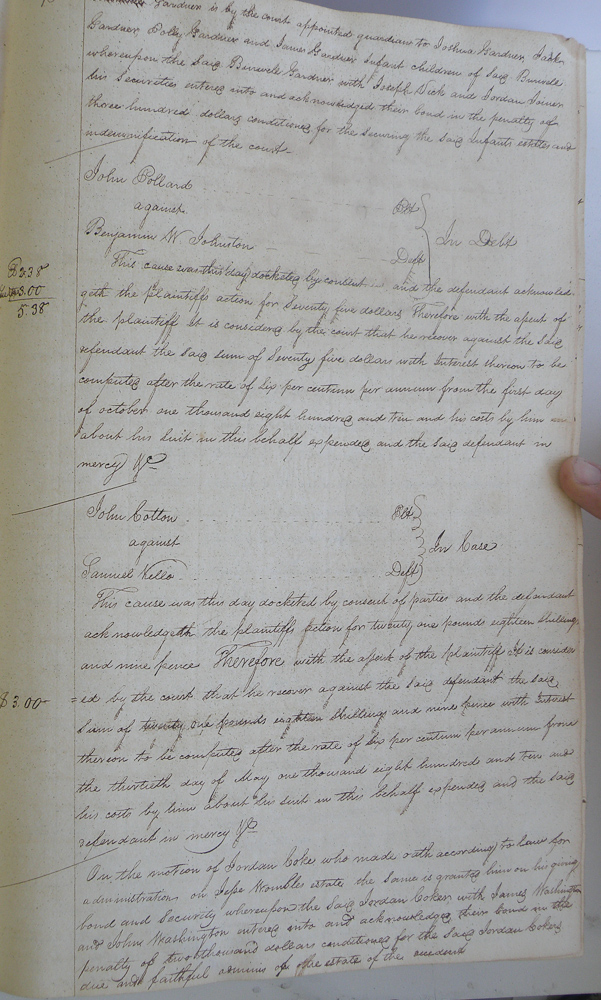 Gardner is by the court appointed guardian to Joshua Gardner,
Gardner, Polley Gardner and James Gardner Infant children of Said
whereupon the Said Gardner with Joseph Dick and Jordan Joiner
his Securities entered into and acknowledged their bond in the penalty of
three hundred dollars conditioned for the securing the said Infants estates and
indemnification of the court
John Pollard Plt
against In Debt
Benjamin W Johnston Deft
This cause was this day docketed by consent and the defendant acknowled-
geth the plaintiffs action for Seventy five dollars Therefore with the assent of
the plaintiff It is considered by the court that he recover against the Said
defendant the Said sum of Seventy five dollars with Interest thereon to be
computed after the rate of Six per centum per annum from the first day
of october one thousand eight hundred and ten and his costs by him
about his Suit in this behalf expended and the Said defendant in
mercy &c
2.38
3.00
5.38
John Cotton Plt
against In Case
Samuel Kello Deft
This cause was this day docketed by consent of parties and the defendant
acknowledgeth the plaintiffs action for twenty one pounds eighteen Shillings
and nine pence Therefore with the assent of the plaintiff It is consider
=ed by the court that he recover against the Said defendant the Said
Sum of twenty one pounds eighteen Shillings and nine pence with Interest
thereon to be computed after the rate of Six per centum per annum from
the thirtieth day of May one thousand eight hundred and ten and
his costs by him about his suit in this behalf expended and the Said
defendant in mercy &c
$3.00
On the motion of Jordan Coke who made oath according to law for
administration on Jesse Wombles estate the Same is granted him on his giving
bond and Security whereupon the Said Jordan Coker with James Washington
and John Washington entered into and acknowledged their bond in the
penalty of two thousand dollars conditioned for the said Jordan Cokers
due and faithful adminis of the estate of the decedent